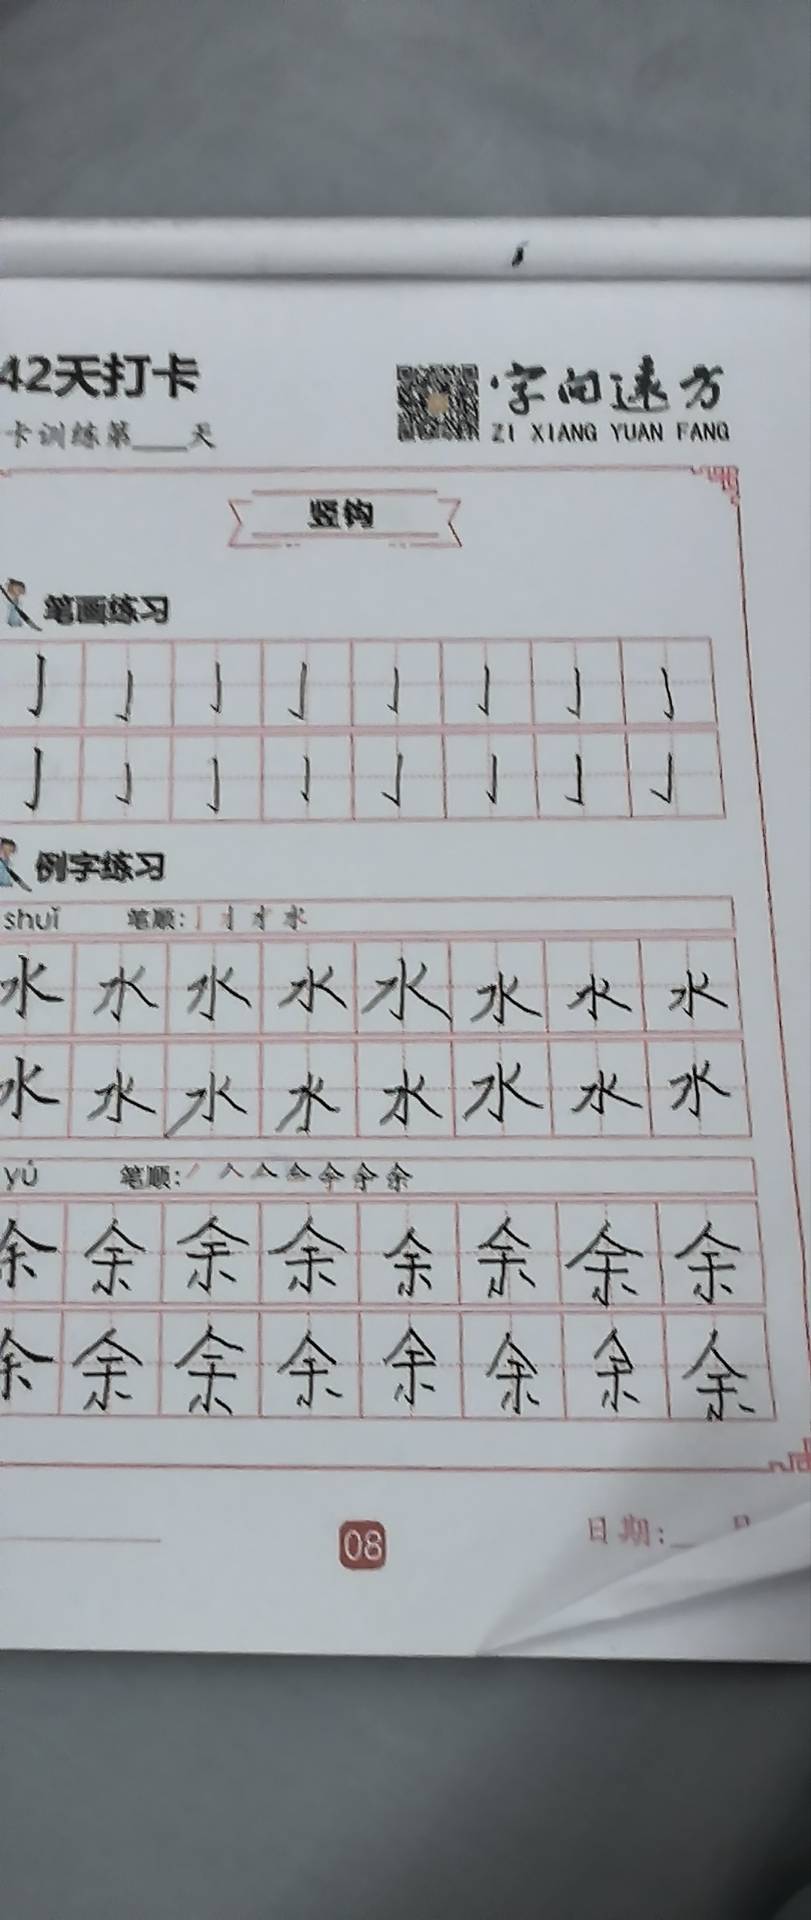 42天打卡
字向远方
卡训练第___天
ZI XIANG YUAN FANG
竖钩
笔画练习
亅 亅 亅 亅 亅 亅 亅 亅
亅 亅 亅 亅 亅 亅 亅 亅
例字练习
shuǐ 笔顺:
水 水 水 水 水 水 水 水
水 水 水 水 水 水 水 水
yú 笔顺:
余 余 余 余 余 余 余 余
余 余 余 余 余 余 余 余
08
日期:___月